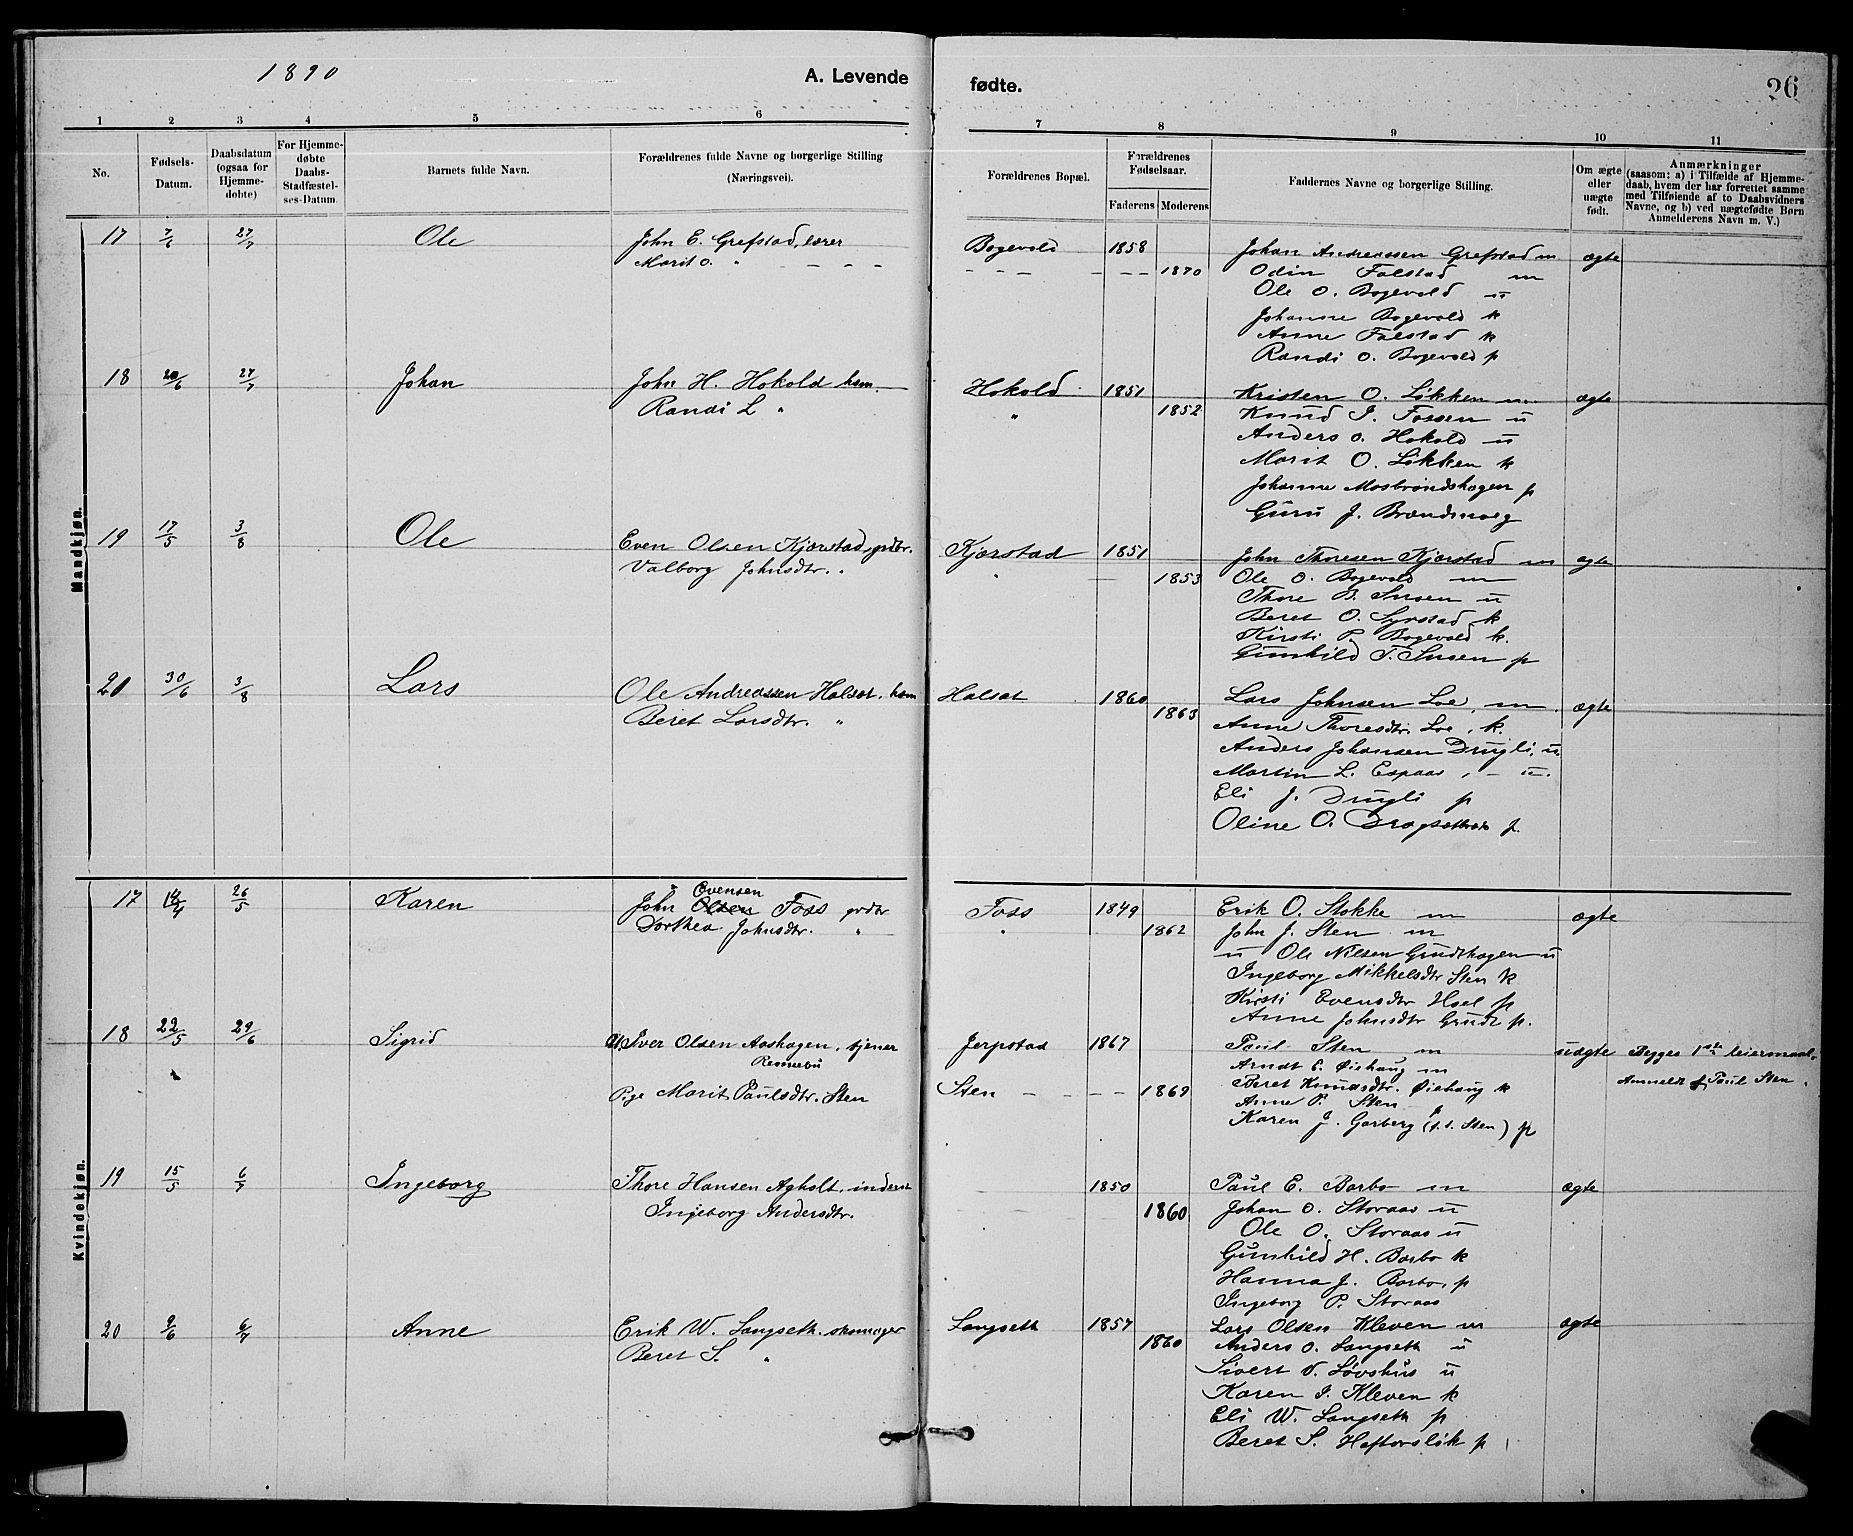 1890
A. Levende fødte.
26
1 2 3 4 5 6 7 8 9 10 11
No.
Fødsels-Datum.
Daabsdatum (ogsaa for Hjemme-døbte)
For Hjemme-døbte Daabs-Stadfæstel-ses-Datum
Barnets fulde Navn.
Forældrenes fulde Navne og borgerlige Stilling (Næringsvei).
Forældrenes Bopæl.
Forældrenes Fødselsaar.
Faderens Moderens
Faddernes Navne og borgerlige Stilling.
Om ægte eller uægte født.
Anmærkninger (saasom: a) i Tilfælde af Hjemme-daab, hvem der har forrettet samme med Tilføiende af to Daabsvidners Navne, og b) ved uægtefødte Børn Anmelderens Navn m. V.)
Mandkjøn.
17 7/6 27/7 Ole John E. Grefstad, lærer Bogevold 1858 Johan Andreassen Grefstad m ægte
Marit O. " - - - 1870 Odin Falstad m
Ole O. Bogevold u
Johanne Bogevold k
Anne Falstad k
Randi O. Bogevold p
18 20/6 27/7 Johan John H. Hokold husm. Hokold 1851 Kristen O. Løkken m. ægte
Randi L " " 1852 Knud J. Fossen u
Anders O. Hokold u
Marit O. Løkken k
Johanne Mosbrøndshagen p
Guru J. Brændsvoeg
19 17/5 3/8 Ole Even Olsen Kjærstad, grdbr. Kjærstad 1851 John Thoresen Kjærstad m ægte
Valborg Johnsdtr. " " 1853 Ole O. Bogevold m
Thore B. Snoen u
Beret O. Syrstad k
Kirsti P. Bogevold k.
Gunhild T. Snoen p
20 30/6 3/8 Lars Ole Andreassen Halsat, husm Halsat 1860 Lars Johnsen Loe, m. ægte
Beret Larsdtr. " 1863 Anne Thoresdtr. Loe, k.
Anders Johansen Drugli, u.
Martin L. Espaas, - u.
Eli J. Drugli p
Oline O. Dragsetmo p.
Kvindekjøn.
17 14/4 26/5 Karen John Olsen Evensen Foss grdbr Foss 1849 Erik O. Stokke m ægte
Dorthea Johnsdtr. " " 1862 John J. Sten m
u Ole Nilsen Grudthagen u
Ingeborg Mikkelsdtr Sten k
Kirsti Evensdtr Hoel p
Anne Johnsdtr Grudt p.
18 22/5 29/6 Sigrid Iver Olsen Aashagen, tjener Jerpstad 1867 Paul Sten m uægte Begges 1ste leiermaal.
Rennebu Arndt E. Øiehaug m Anmeldt af Paul Sten.
Pige Marit Paulsdtr. Sten Sten - - - 1869 Beret Knudsdtr. Øiehaug k
Anne P. Sten p
Karen J. Garberg (f. t. Sten) p
19 15/5 6/7 Ingeborg Thore Hansen Agholt, inderst 1850 Paul E. Barbo m ægte
Ingeborg Andersdtr. 1860 Johan O. Storaas u
Ole O. Storaas u
Gunhild H. Barbo k
Hanna J. Barbo, p
Ingeborg P. Storaas
20 9/6 6/7 Anne Erik W. Langseth, skomager Langseth 1857 Lars Olsen Kleven m ægte
Beret S. " 1860 Anders O. Langseth u
Sivert V. Løvshus u
Karen J. Kleven k
Eli W. Langseth p
Beret S. Heftorsløk p